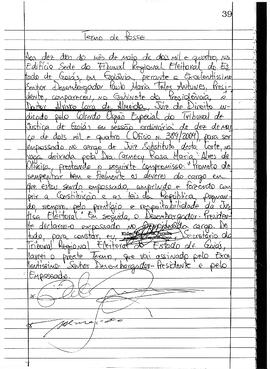 39
Termo de Posse
Aos dez dias do mês de maio de dois mil e quatro, no
Edifício Sede do Tribunal Regional Eleitoral do Es-
tado de Goiás, em Goiânia, perante o Excelentíssimo
Senhor Desembargador Paulo Maria Teles Antunes, Presi-
dente, compareceu, no Gabinete da Presidência, o
Doutor Alvaro Lara de Almeida, Juiz de Direito in-
dicado pelo Colendo Órgão Especial do Tribunal de
Justiça de Goiás, em sessão ordinária de dez de mar-
ço de dois mil e quatro (Ofício n. 389/2004), para ser
empossado no cargo de Juiz Substituto desta Corte, na
vaga deixada pela Dra. Carmecy Rosa Maria Alves de
Oliveira, prestando o seguinte compromisso: "Prometo de-
sempenhar bem e fielmente os deveres do cargo em
que estou sendo empossado, cumprindo e fazendo cum-
prir a Constituição e as leis da República, pugnan-
do, sempre, pelo prestígio e respeitabilidade da Jus-
tiça Eleitoral". Em seguida, o Desembargador-Presiden-
te declarou-o empossado no cargo. De
tudo, para constar, eu Secretário do
Tribunal Regional Eleitoral do Estado de Goiás,
lavrei o presente Termo, que vai assinado pelo Exce-
lentíssimo Senhor Desembargador-Presidente e pelo
Empossado.